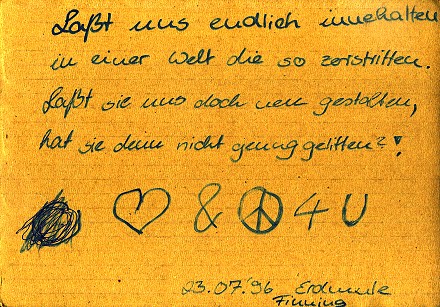 Laßt uns endlich innehalten
in einer Welt die so zerstritten.
Laßt sie uns doch neu gestalten,
hat sie denn nicht genug gelitten?!
♡ & ☮ 4 U
23.07.'96 Erdmute
Finning